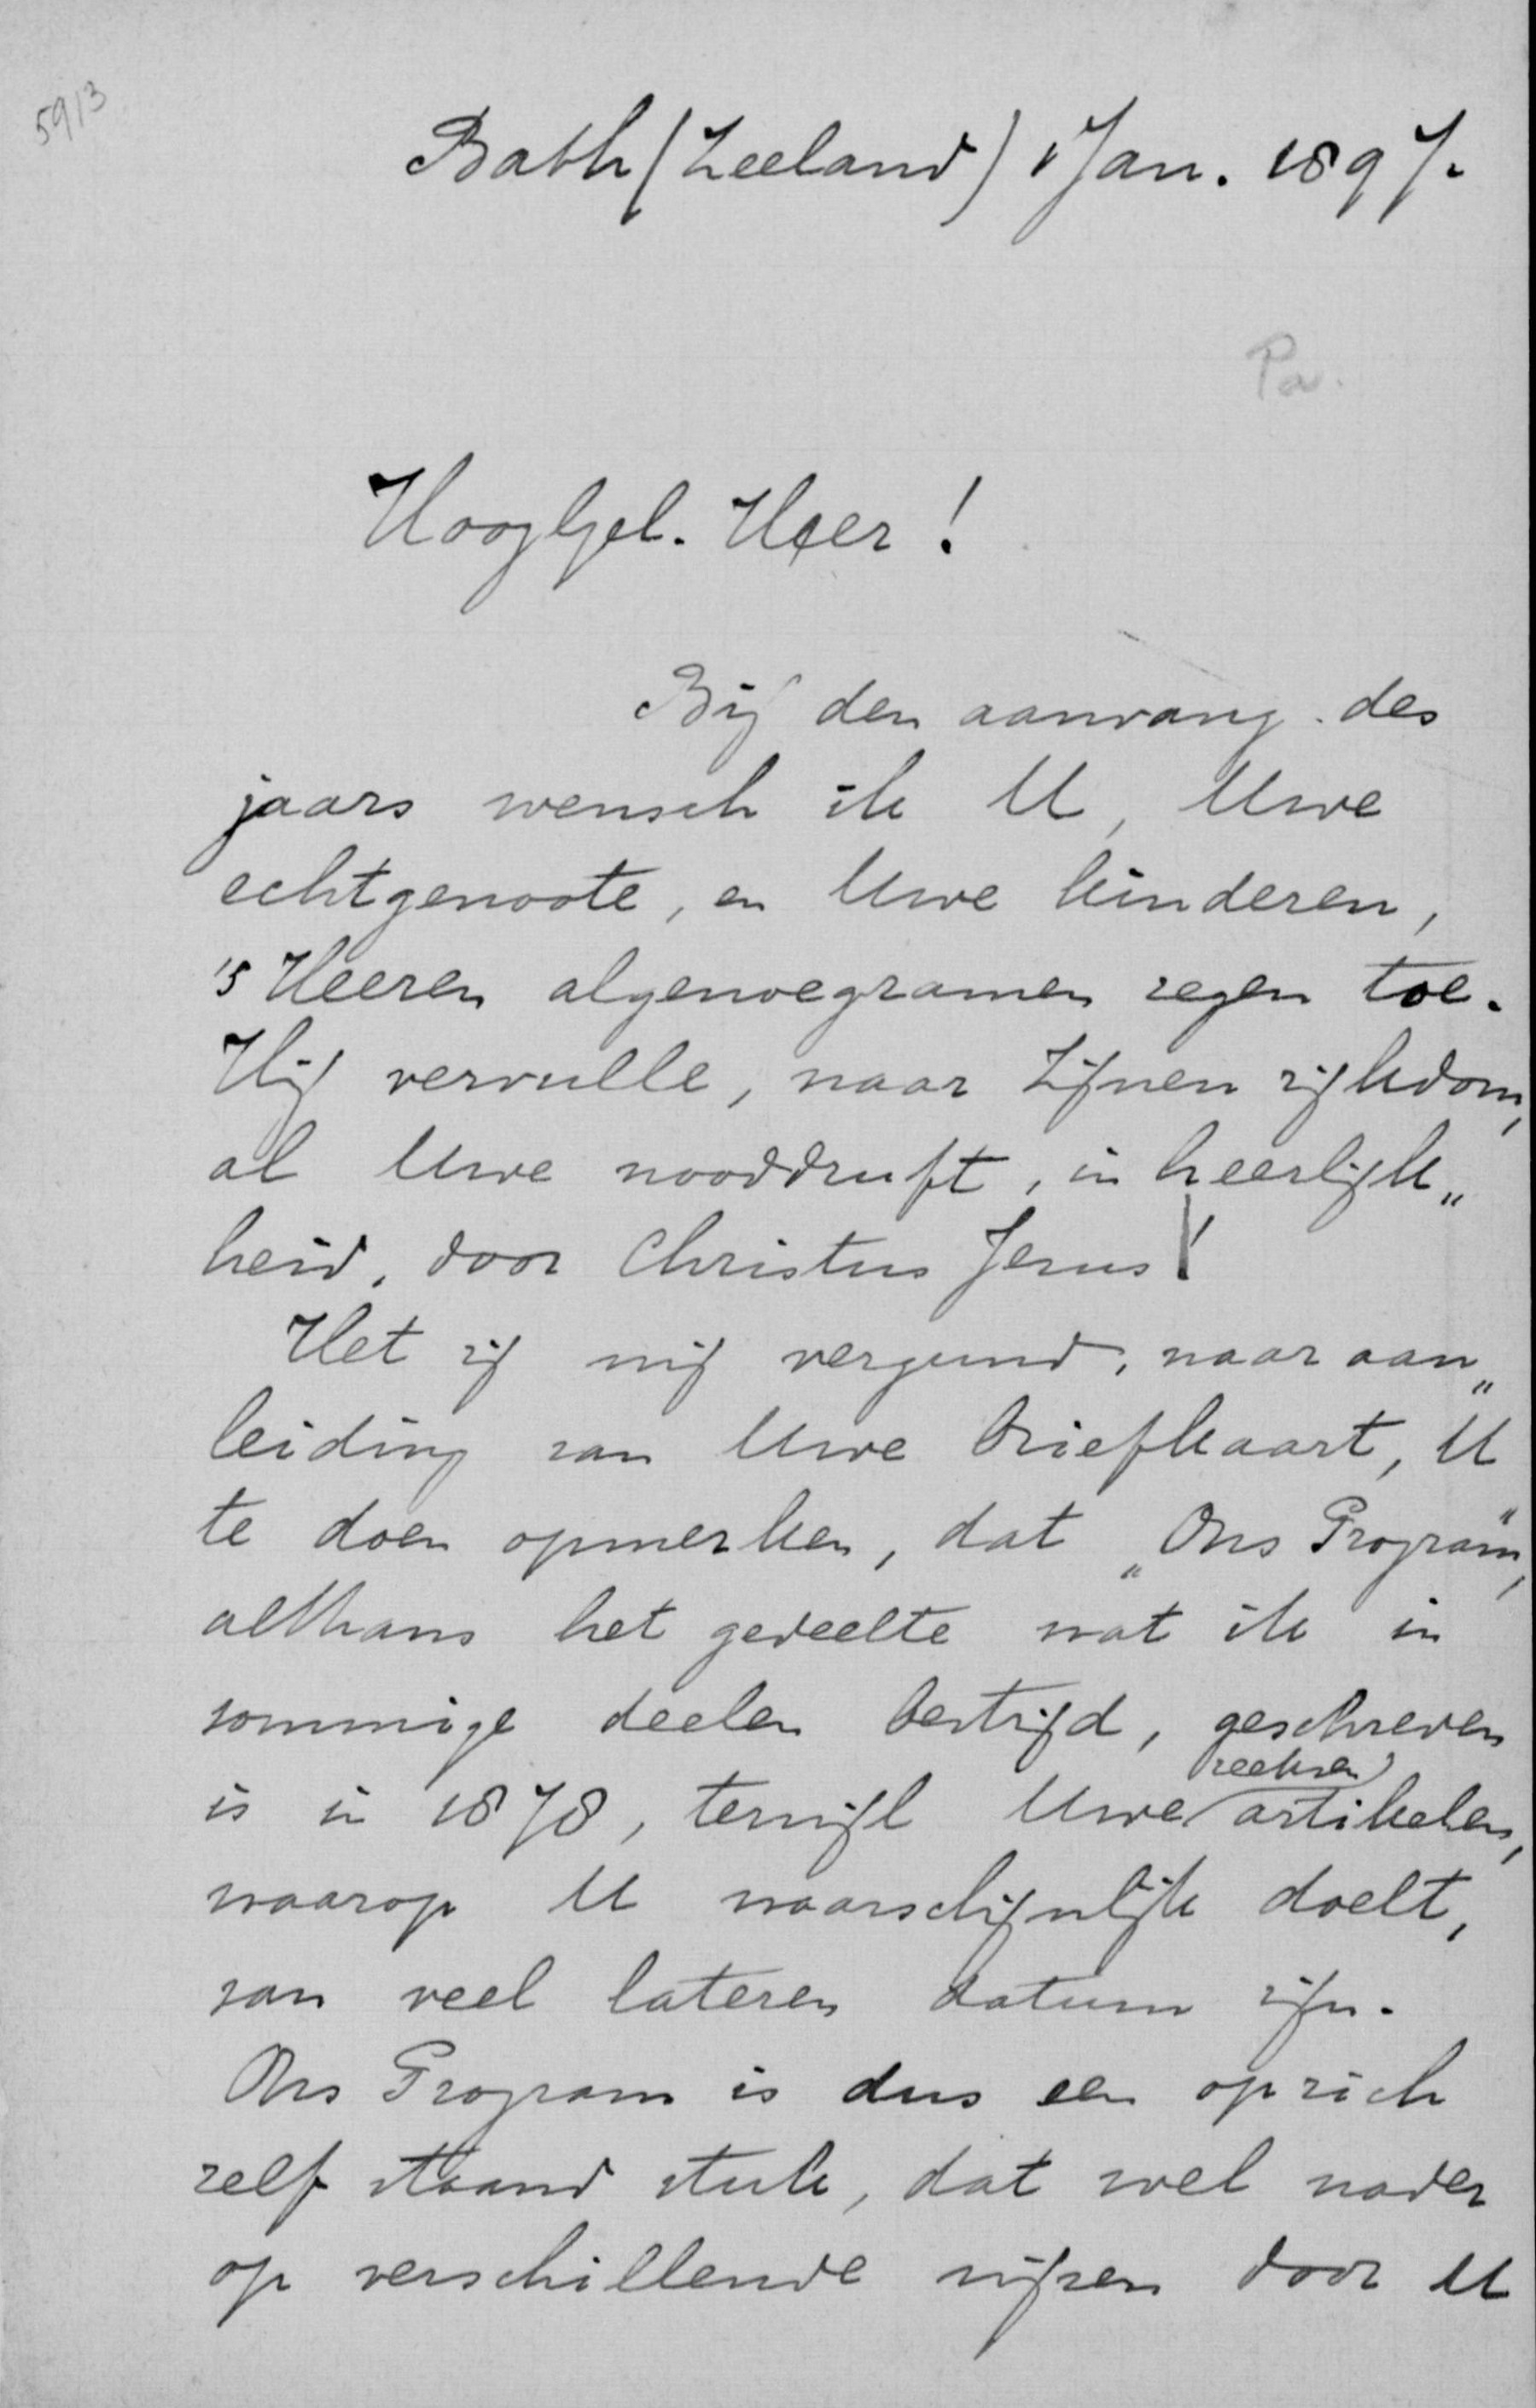 5913
Bath (Zeeland) 1 Jan. 1897.
Pa.
HoogGel. Heer!
Bij den aanvang des
jaars wensch ik U, Uwe
echtgenoote, en Uwe kinderen,
's Heeren algenoegzamen zegen toe.
Hij vervulle, naar Zijnen rijkdom,
al Uwe nooddruft, in heerlijk„
heid, door Christus Jezus!
Het zij mij vergund, naar aan„
leiding van Uwe briefkaart, U
te doen opmerken, dat „Ons Program",
althans het gedeelte wat ik in
sommige deelen bestrijd, geschreven
is in 1878, terwijl Uwe artikelen,
waarop U waarschijnlijk doelt,
van veel lateren datum zijn.
Ons Program is dus een op zich
zelf staand stuk, dat wel nader
op verschillende wijzen door U